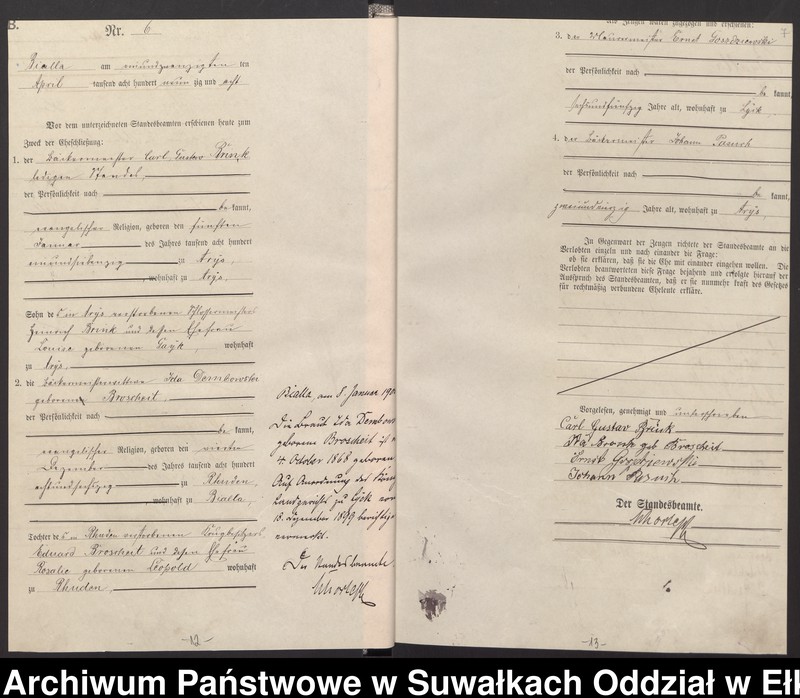 B.
Nr. 6
Bialla am neunundzwanzigsten ten
April tausend acht hundert neun zig und acht
Vor dem unterzeichneten Standesbeamten erschienen heute zum
Zweck der Eheschließung:
1. der Bäckermeister Carl Gustav Brink
ledigen Standes,
der Persönlichkeit nach
be kannt,
evangelischer Religion, geboren den fünften
Januar des Jahres tausend acht hundert
neunundsiebenzig zu Arys,
wohnhaft zu Arys,
Sohn des in Arys verstorbenen Schlossermeisters
Heinrich Brink und dessen Ehefrau
Louise geborenen wohnhaft
zu Arys.
2. die Bäckermeisterwittwe Ida Dombowski
geborene Broscheit,
der Persönlichkeit nach
be kannt,
evangelischer Religion, geboren den vierten
Dezember des Jahres tausend acht hundert
achtundsechszig zu Rhuden,
wohnhaft zu Bialla,
Tochter des in Rhuden verstorbenen
Eduard Broscheit und dessen Ehefrau
Rosalie geborenen Leopold wohnhaft
zu Rhuden,
Bialla, am 8. Januar
Die Braut Ida
geborene Broscheit ist
4 October 1868 geboren
Auf Anordnung des
Landgerichts zu Lyck vom
13. Dezember 1899
vermerkt.
Der Standesbeamte
-12-
7
als Zeugen waren zugezogen und erschienen:
3. der Maurermeister Ernst
der Persönlichkeit nach
be kannt,
sechsundfünfzig Jahre alt, wohnhaft zu Lyck,
4. der Bäckermeister Johann
der Persönlichkeit nach
be kannt,
Jahre alt, wohnhaft zu Arys.
In Gegenwart der Zeugen richtete der Standesbeamte an die
Verlobten einzeln und nach einander die Frage:
ob sie erklären, daß sie die Ehe mit einander eingehen wollen. Die
Verlobten beantworteten diese Frage bejahend und erfolgte hierauf der
Ausspruch des Standesbeamten, daß er sie nunmehr kraft des Gesetzes
für rechtmäßig verbundene Eheleute erkläre.
Vorgelesen, genehmigt und unterschrieben
Carl Gustav Brink
geb Broscheit
Ernst
Johann
Der Standesbeamte.
-13-
Archiwum Państwowe w Suwałkach Oddział w Eł